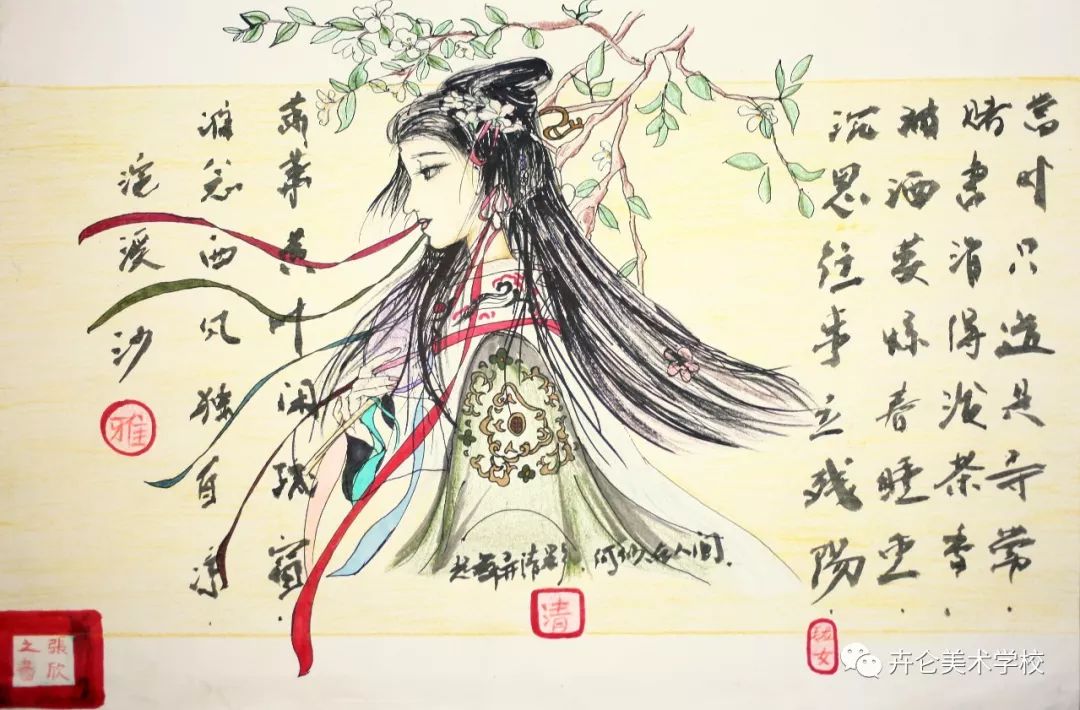 浣溪沙
谁念西风独自凉
萧萧黄叶闭疏窗.
沉思往事立残阳.
被酒莫惊春睡重.
赌书消得泼茶香.
當时只道是寻常.
雅
起舞弄清影.何似在人间.
清
淑女
張欣之書
卉仑美术学校